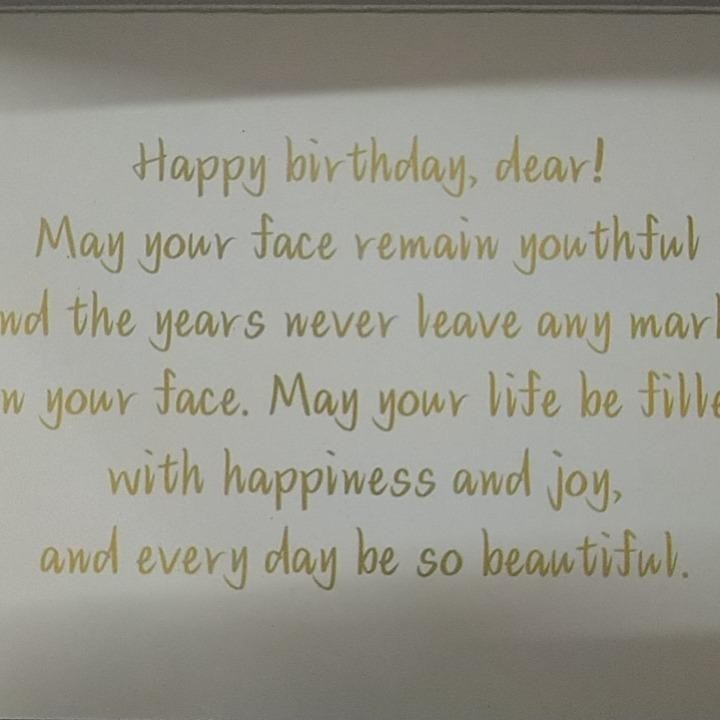 Happy birthday, dear!
May your face remain youthful
the years never leave any
your face. May your life be
with happiness and joy,
and every day be so beautiful.